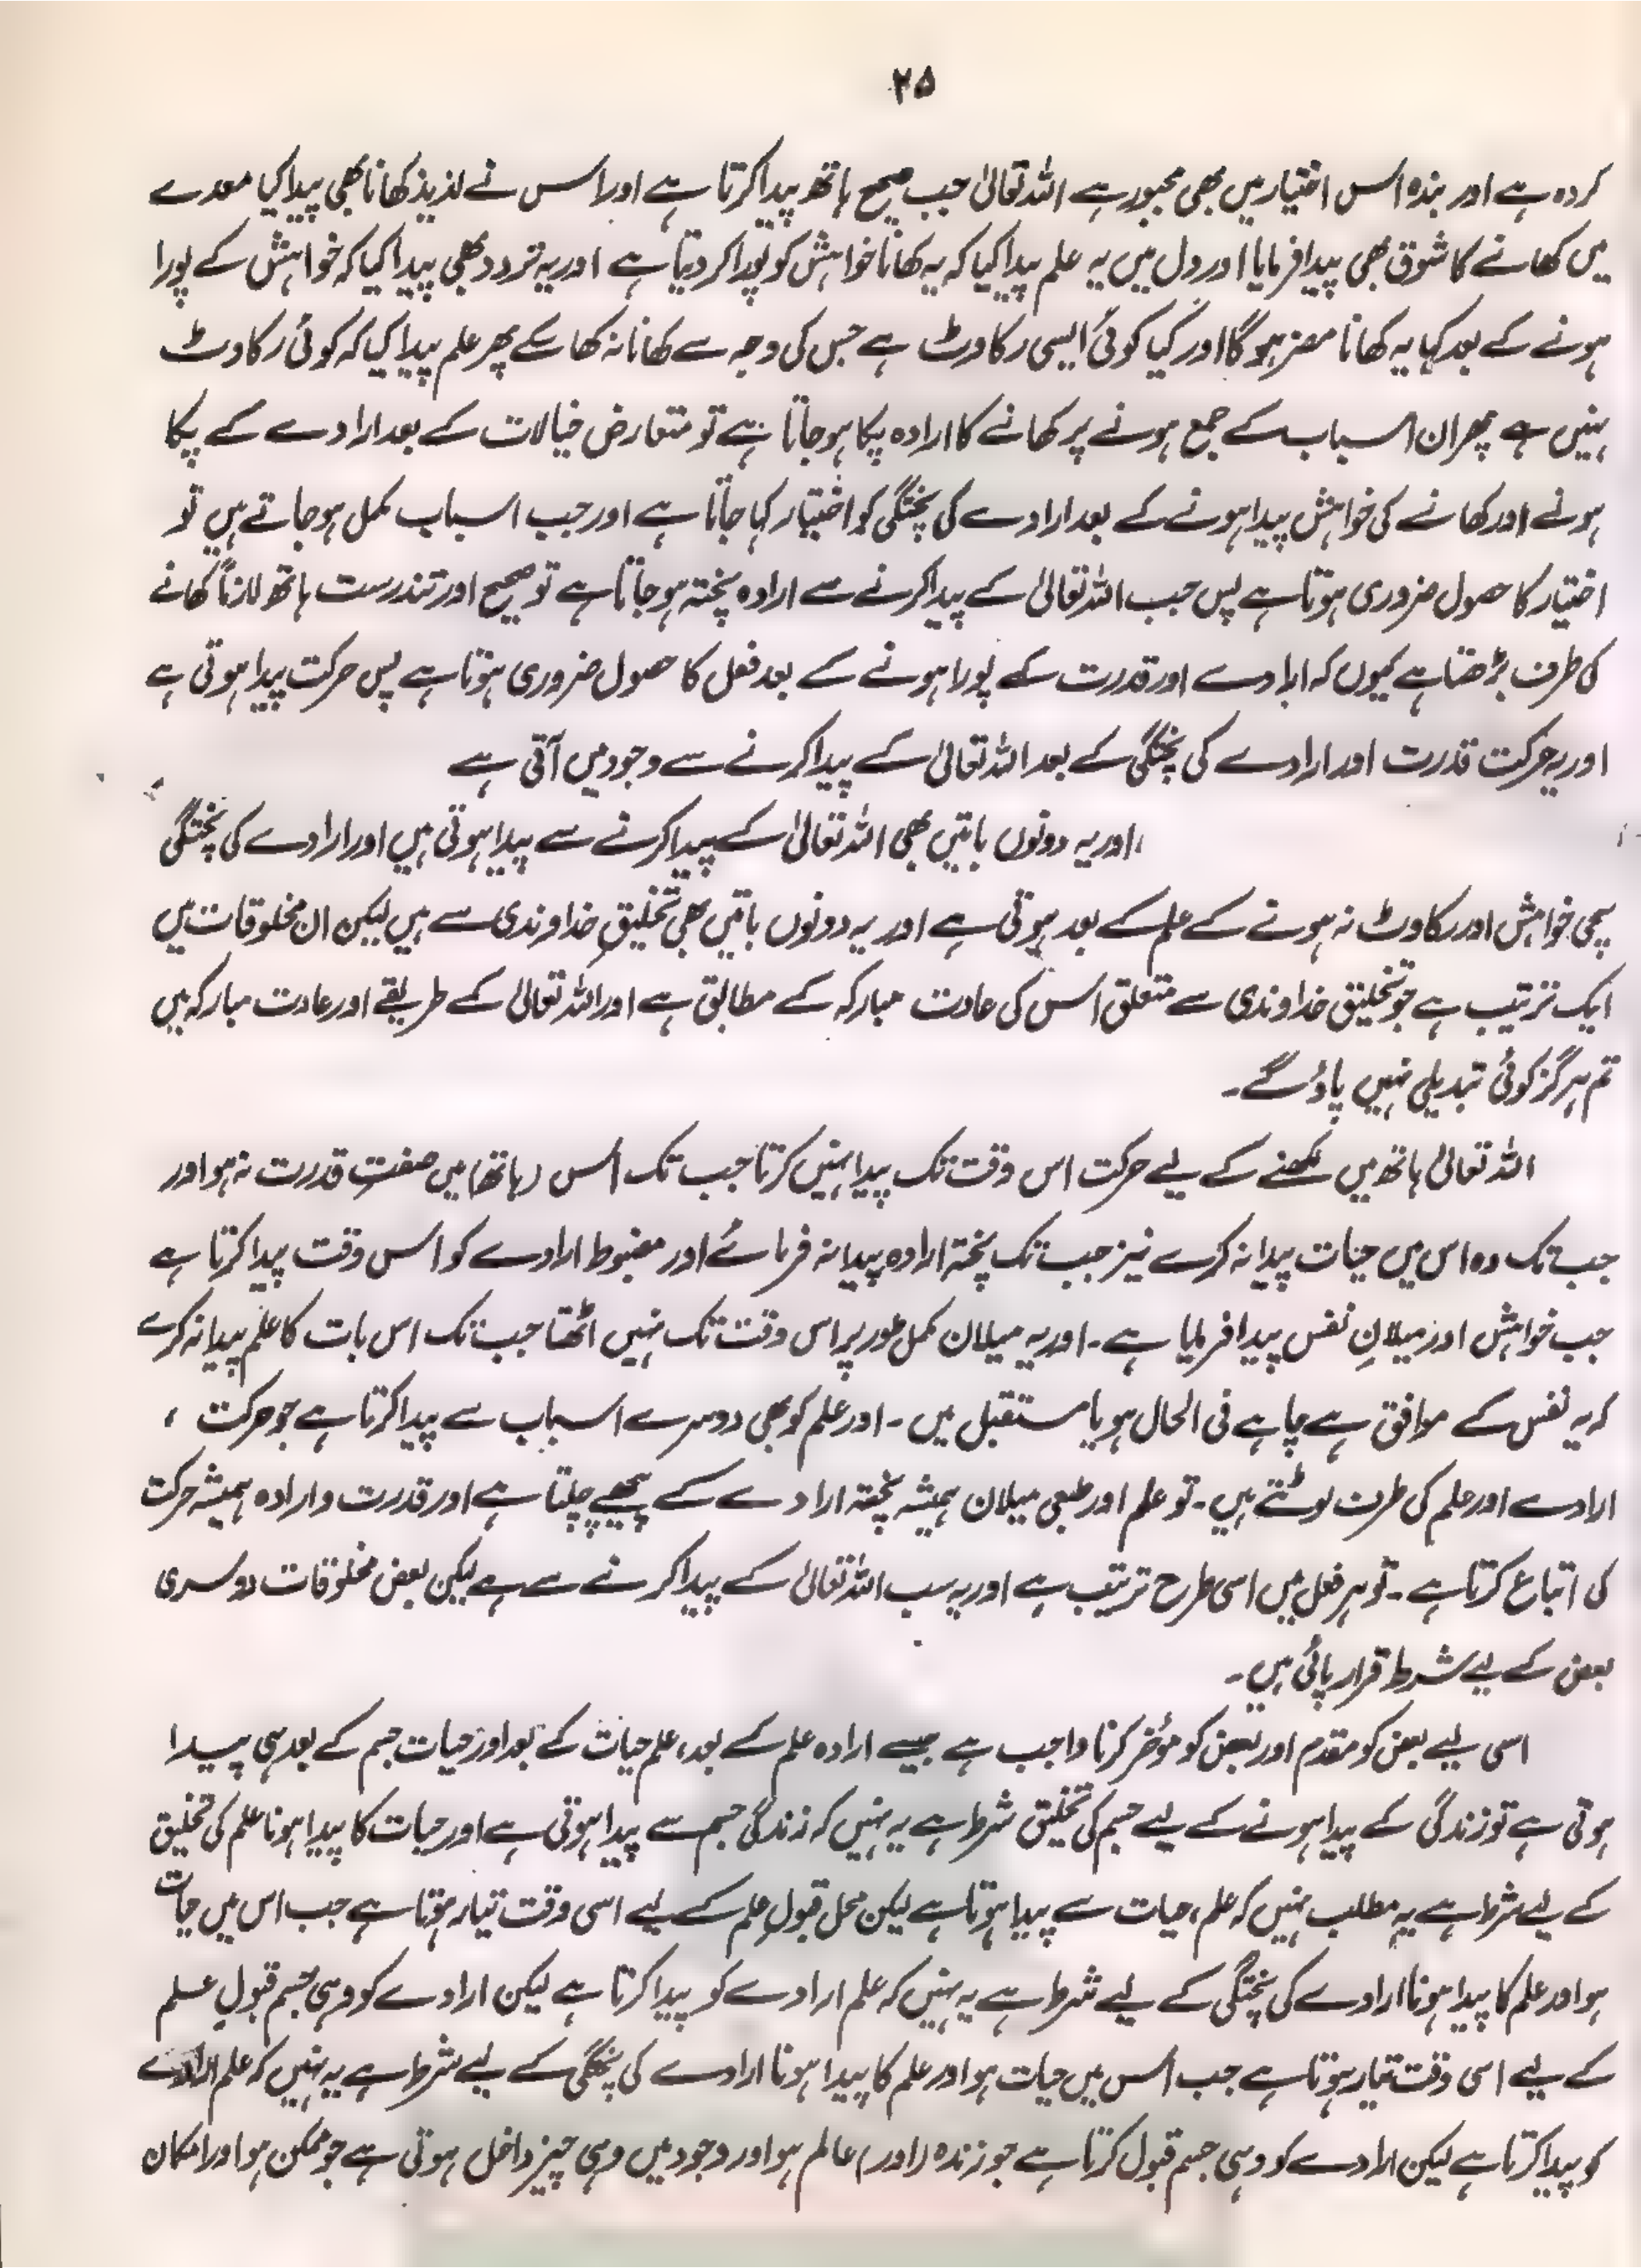 ۲۵
کردہ ہے اور بندہ اس اختیار میں بھی مجبور ہے اللہ تعالیٰ جب صحیح ہاتھ پیدا کرتا ہے اور اس نے لذیذ کھانا بھی پیدا کیا معدے
میں کھانے کا شوق بھی پیدا فرمایا اور دل میں یہ علم پیدا کیا کہ یہ کھانا خواہش کو پورا کر دیتا ہے اور یہ تردد بھی پیدا کیا کہ خواہش کے پورا
ہونے کے بعد کہا یہ کھانا مضر ہو گا اور کیا کوئی ایسی رکاوٹ ہے جس کی وجہ سے کھانا نہ کھا سکے پھر علم پیدا کیا کہ کوئی رکاوٹ
نہیں ہے پھر ان اسباب کے جمع ہونے پر کھانے کا ارادہ پکا ہو جاتا ہے تو متعارض خیالات کے بعد ارادے کے پکا
ہونے اور کھانے کی خواہش پیدا ہونے کے بعد ارادے کی پختگی کو اختیار کہا جاتا ہے اور جب اسباب مکمل ہو جاتے ہیں تو
اختیار کا حصول ضروری ہوتا ہے پس جب اللہ تعالیٰ کے پیدا کرنے سے ارادہ پختہ ہو جاتا ہے تو صحیح اور تندرست ہاتھ لازماً کھانے
کی طرف بڑھتا ہے کیوں کہ ارادے اور قدرت کے پورا ہونے کے بعد فعل کا حصول ضروری ہوتا ہے پس حرکت پیدا ہوتی ہے
اور یہ حرکت قدرت اور ارادے کی پختگی کے بعد اللہ تعالیٰ کے پیدا کرنے سے وجود میں آتی ہے
اور یہ دونوں باتیں بھی اللہ تعالیٰ کے پیدا کرنے سے پیدا ہوتی ہیں اور ارادے کی پختگی
سچی خواہش اور رکاوٹ نہ ہونے کے علم کے بعد ہوتی ہے اور یہ دونوں باتیں بھی تخلیقِ خداوندی سے ہیں لیکن ان مخلوقات میں
ایک ترتیب ہے جو تخلیق خداوندی سے متعلق اس کی عادت مبارکہ کے مطابق ہے اور اللہ تعالیٰ کے طریقے اور عادت مبارکہ میں
تم ہرگز کوئی تبدیلی نہیں پاؤ گے۔
اللہ تعالیٰ ہاتھ میں لکھنے کے لیے حرکت اس وقت تک پیدا نہیں کرتا جب تک اس (ہاتھ) میں صفتِ قدرت نہ ہو اور
جب تک وہ اس میں حیات پیدا نہ کرے نیز جب تک پختہ ارادہ پیدا نہ فرمائے اور مضبوط ارادے کو اس وقت پیدا کرتا ہے
جب خواہش اور میلانِ نفس پیدا فرمایا ہے۔ اور یہ میلان مکمل طور پر اس وقت تک نہیں اٹھتا جب تک اس بات کا علم پیدا نہ کرے
کہ یہ نفس کے موافق ہے چاہے فی الحال ہو یا مستقبل میں۔ اور علم کو بھی دوسرے اسباب سے پیدا کرتا ہے جو حرکت ،
ارادے اور علم کی طرف لوٹتے ہیں۔ تو علم اور طبعی میلان ہمیشہ پختہ ارادے کے پیچھے چلتا ہے اور قدرت و ارادہ ہمیشہ حرکت
کی اتباع کرتا ہے۔ تو ہر فعل میں اسی طرح ترتیب ہے اور یہ سب اللہ تعالیٰ کے پیدا کرنے سے ہے لیکن بعض مخلوقات دوسری
بعض کے لیے شرط قرار پائی ہیں۔
اسی لیے بعض کو مقدم اور بعض کو مؤخر کرنا واجب ہے جیسے ارادہ علم کے بعد، علم حیات کے بعد اور حیات جسم کے بعد ہی پیدا
ہوتی ہے تو زندگی کے پیدا ہونے کے لیے جسم کی تخلیق شرط ہے یہ نہیں کہ زندگی جسم سے پیدا ہوتی ہے اور حیات کا پیدا ہونا علم کی تخلیق
کے لیے شرط ہے یہ مطلب نہیں کہ علم، حیات سے پیدا ہوتا ہے لیکن محل قبولِ علم کے لیے اسی وقت تیار ہوتا ہے جب اس میں حیات
ہو اور علم کا پیدا ہونا ارادے کی پختگی کے لیے شرط ہے یہ نہیں کہ علم ارادے کو پیدا کرتا ہے لیکن ارادے کو وہی جسم قبولِ علم
کے لیے اسی وقت تیار ہوتا ہے جب اس میں حیات ہو اور علم کا پیدا ہونا ارادے کی پختگی کے لیے شرط ہے یہ نہیں کہ علم ارادے
کو پیدا کرتا ہے لیکن ارادے کو وہی جسم قبول کرتا ہے جو زندہ (اور) عالم ہو اور وجود میں وہی چیز داخل ہوتی ہے جو ممکن ہو اور امکان